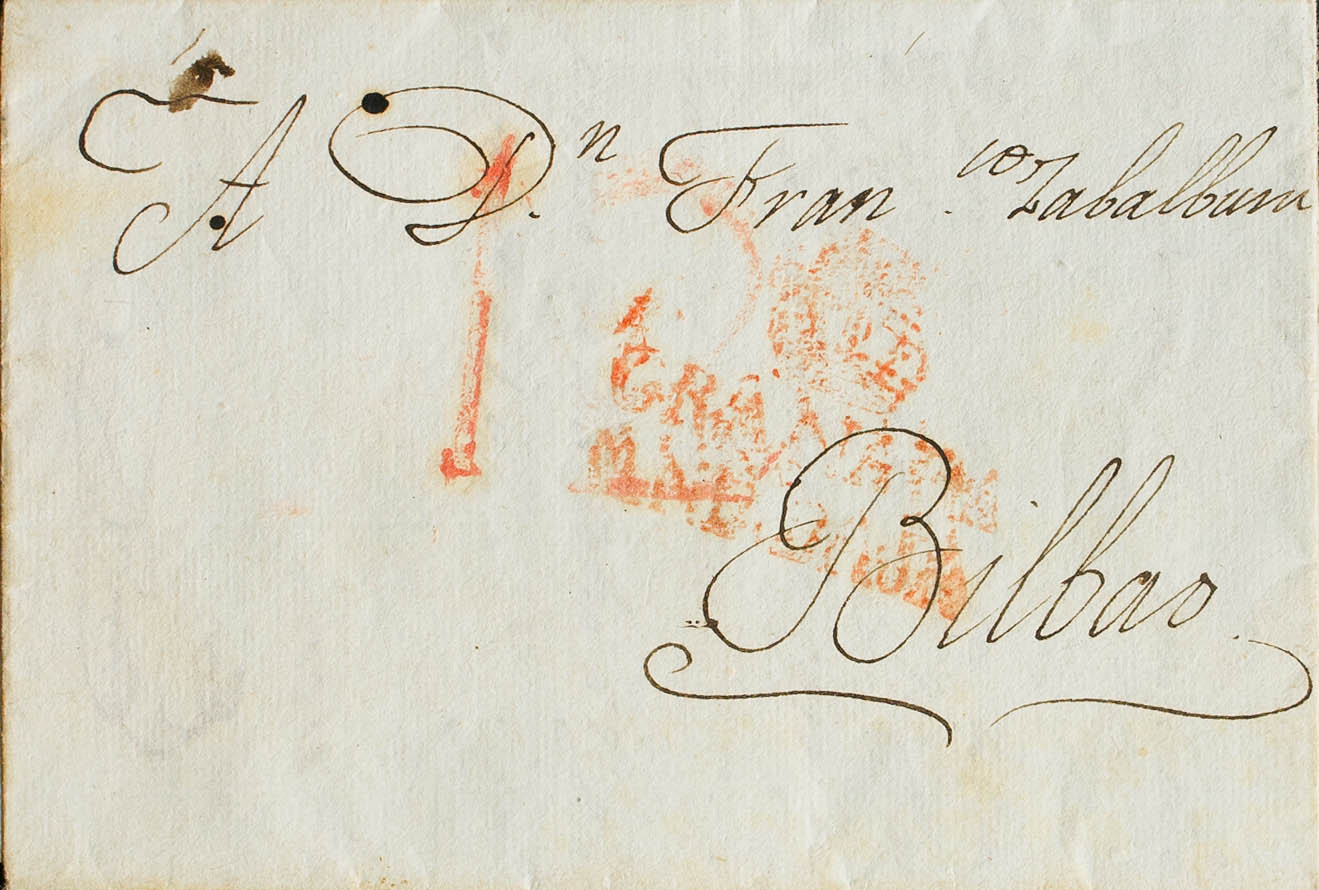 A D.ⁿ Fran.ᶜᵒ Zabalburu
GRANADA
Bilbao